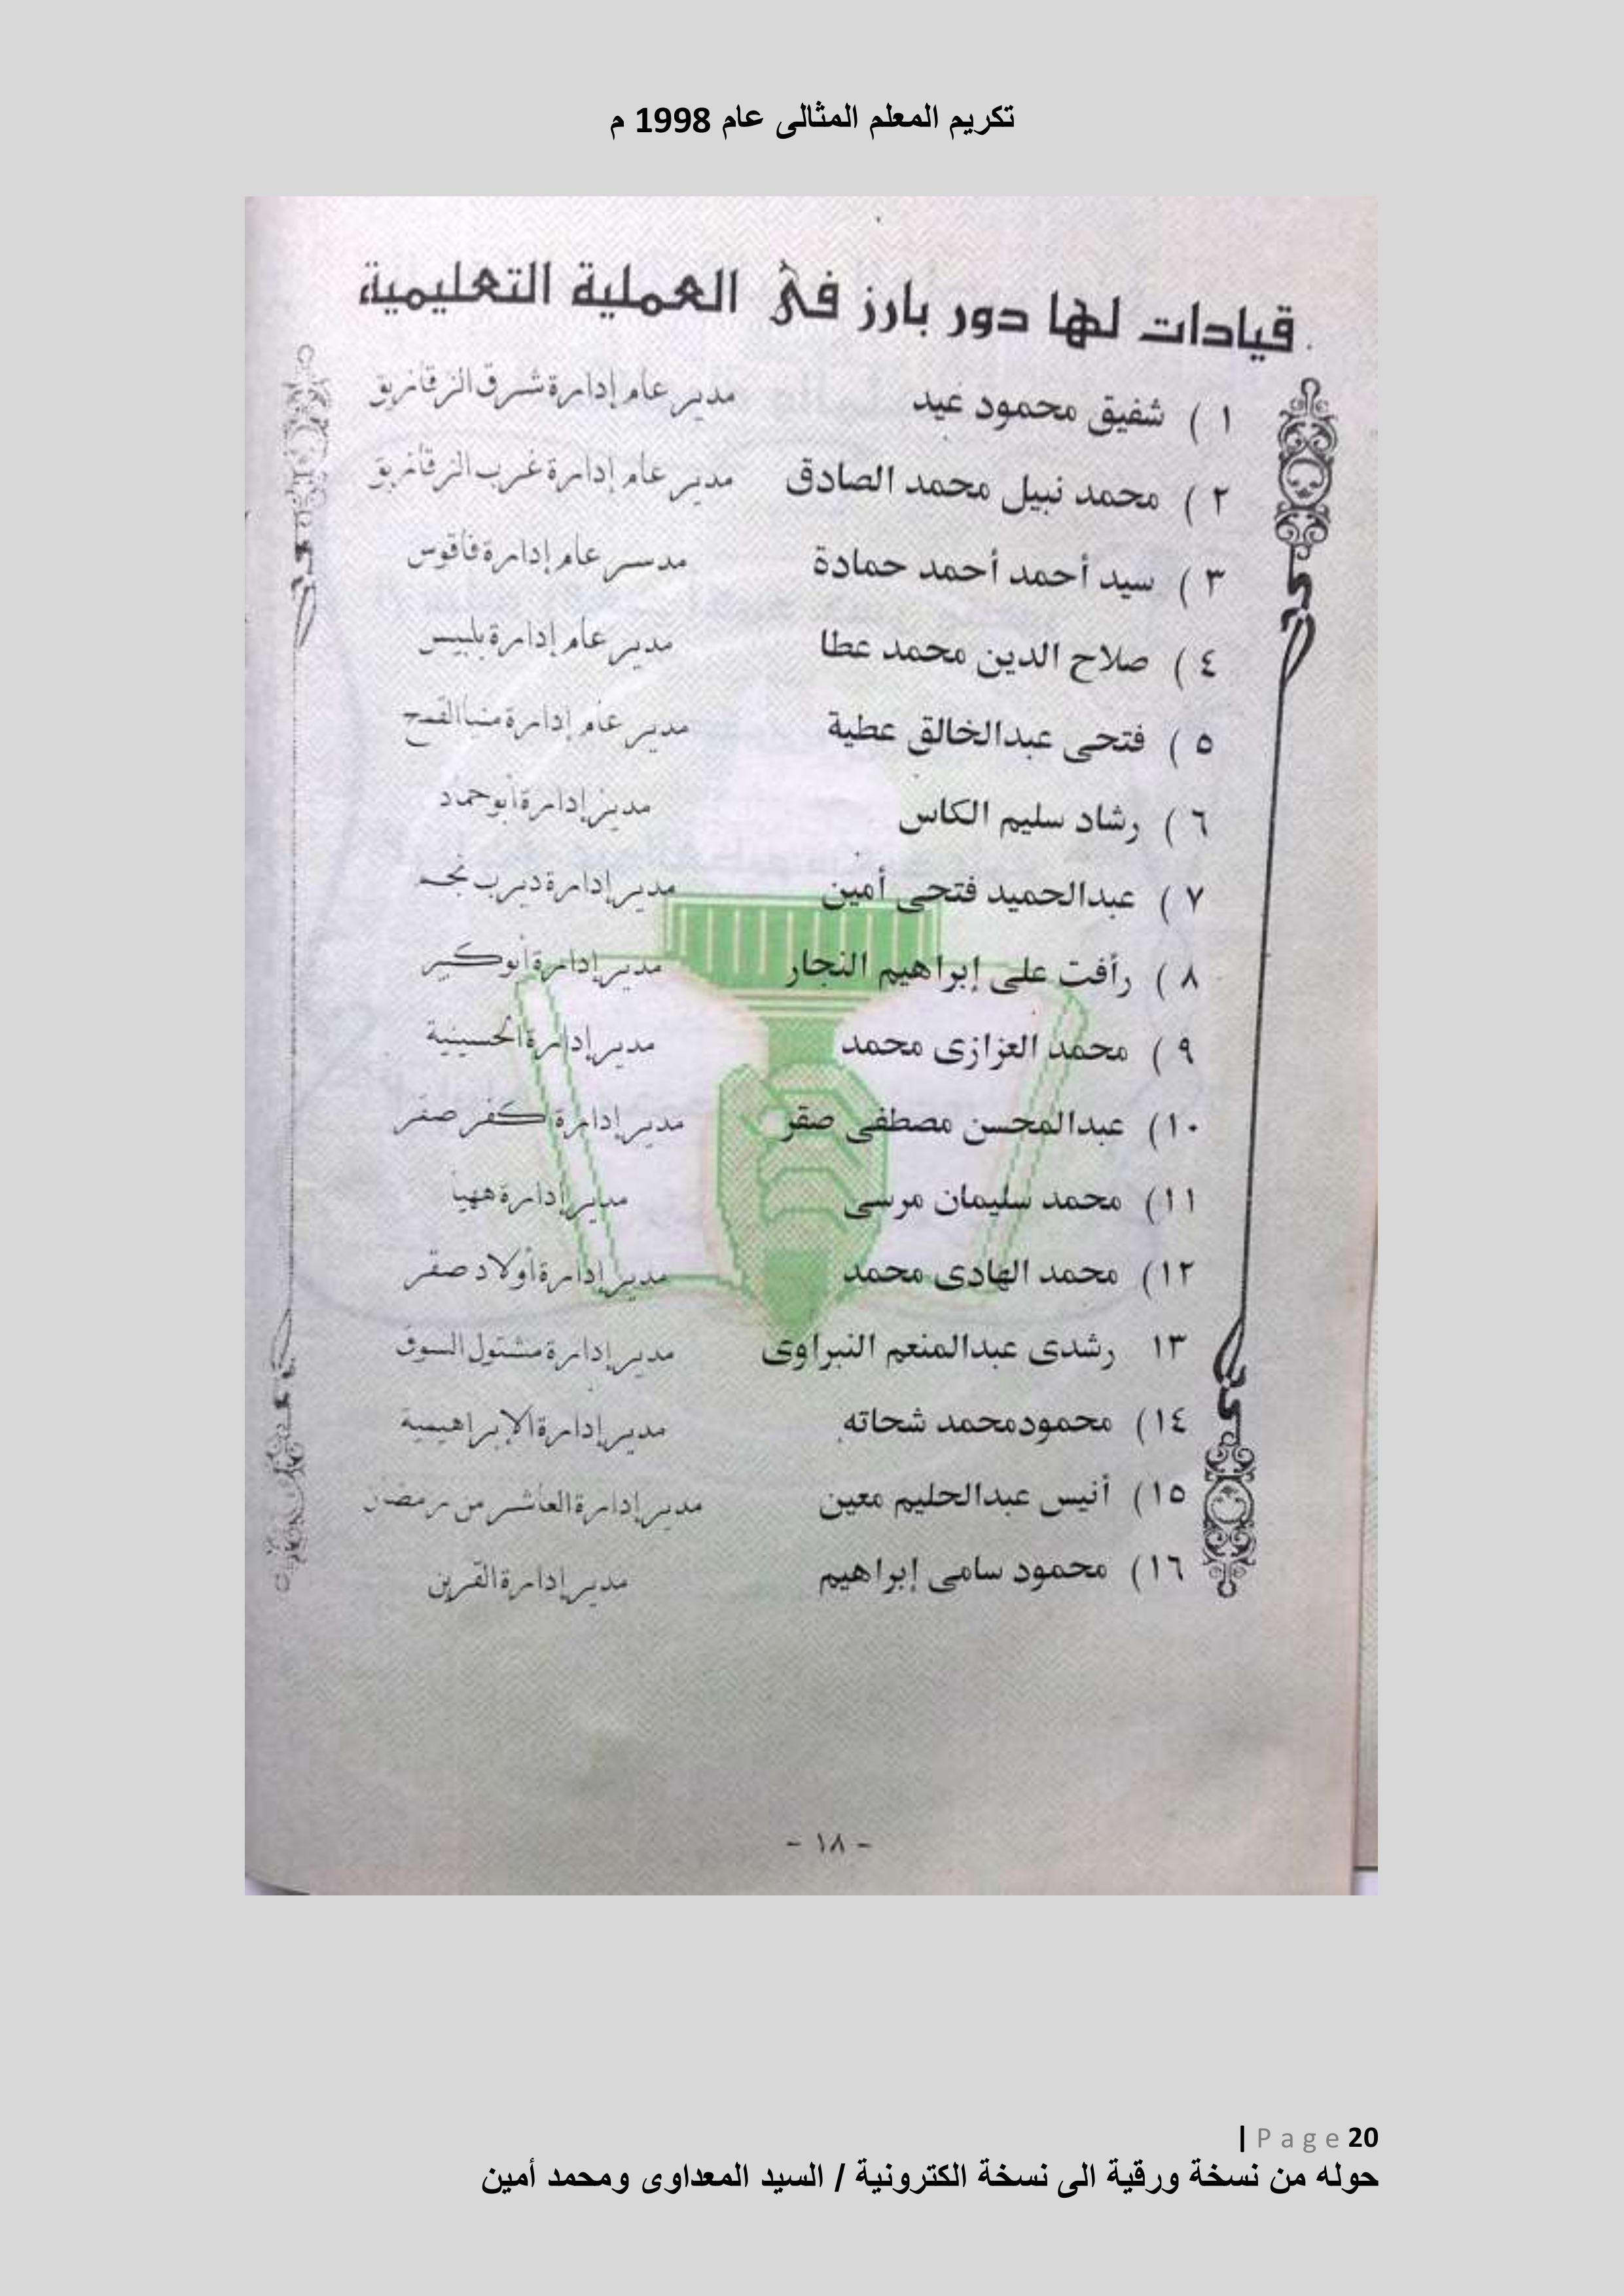 تكريم المعلم المثالى عام 1998 م
قيادات لها دور بارز فى العملية التعليمية
١ ) شفيق محمود عيد مدير عام إدارة شرق الزقازيق
٢ ) محمد نبيل محمد الصادق مدير عام إدارة غرب الزقازيق
٣ ) سيد أحمد أحمد حمادة مدير عام إدارة فاقوس
٤ ) صلاح الدين محمد عطا مدير عام إدارة بلبيس
٥ ) فتحى عبدالخالق عطية مدير عام إدارة منيا القمح
٦ ) رشاد سليم الكاس مدير إدارة أبو حماد
٧ ) عبدالحميد فتحى أمين مدير إدارة ديرب نجم
٨ ) رأفت على إبراهيم النجار مدير إدارة أبو كبير
٩ ) محمد العزازى محمد مدير إدارة الحسينية
١٠) عبدالمحسن مصطفى صقر مدير إدارة كفر صقر
١١) محمد سليمان مرسى مدير إدارة ههيا
١٢) محمد الهادى محمد مدير إدارة أولاد صقر
١٣ رشدى عبدالمنعم النبراوى مدير إدارة مشتول السوق
١٤) محمودمحمد شحاته مدير إدارة الإبراهيمية
١٥) أنيس عبدالحليم معين مدير إدارة العاشر من رمضان
١٦) محمود سامى إبراهيم مدير إدارة القرين
- ١٨ -
| Page 20
حوله من نسخة ورقية الى نسخة الكترونية / السيد المعداوى ومحمد أمين